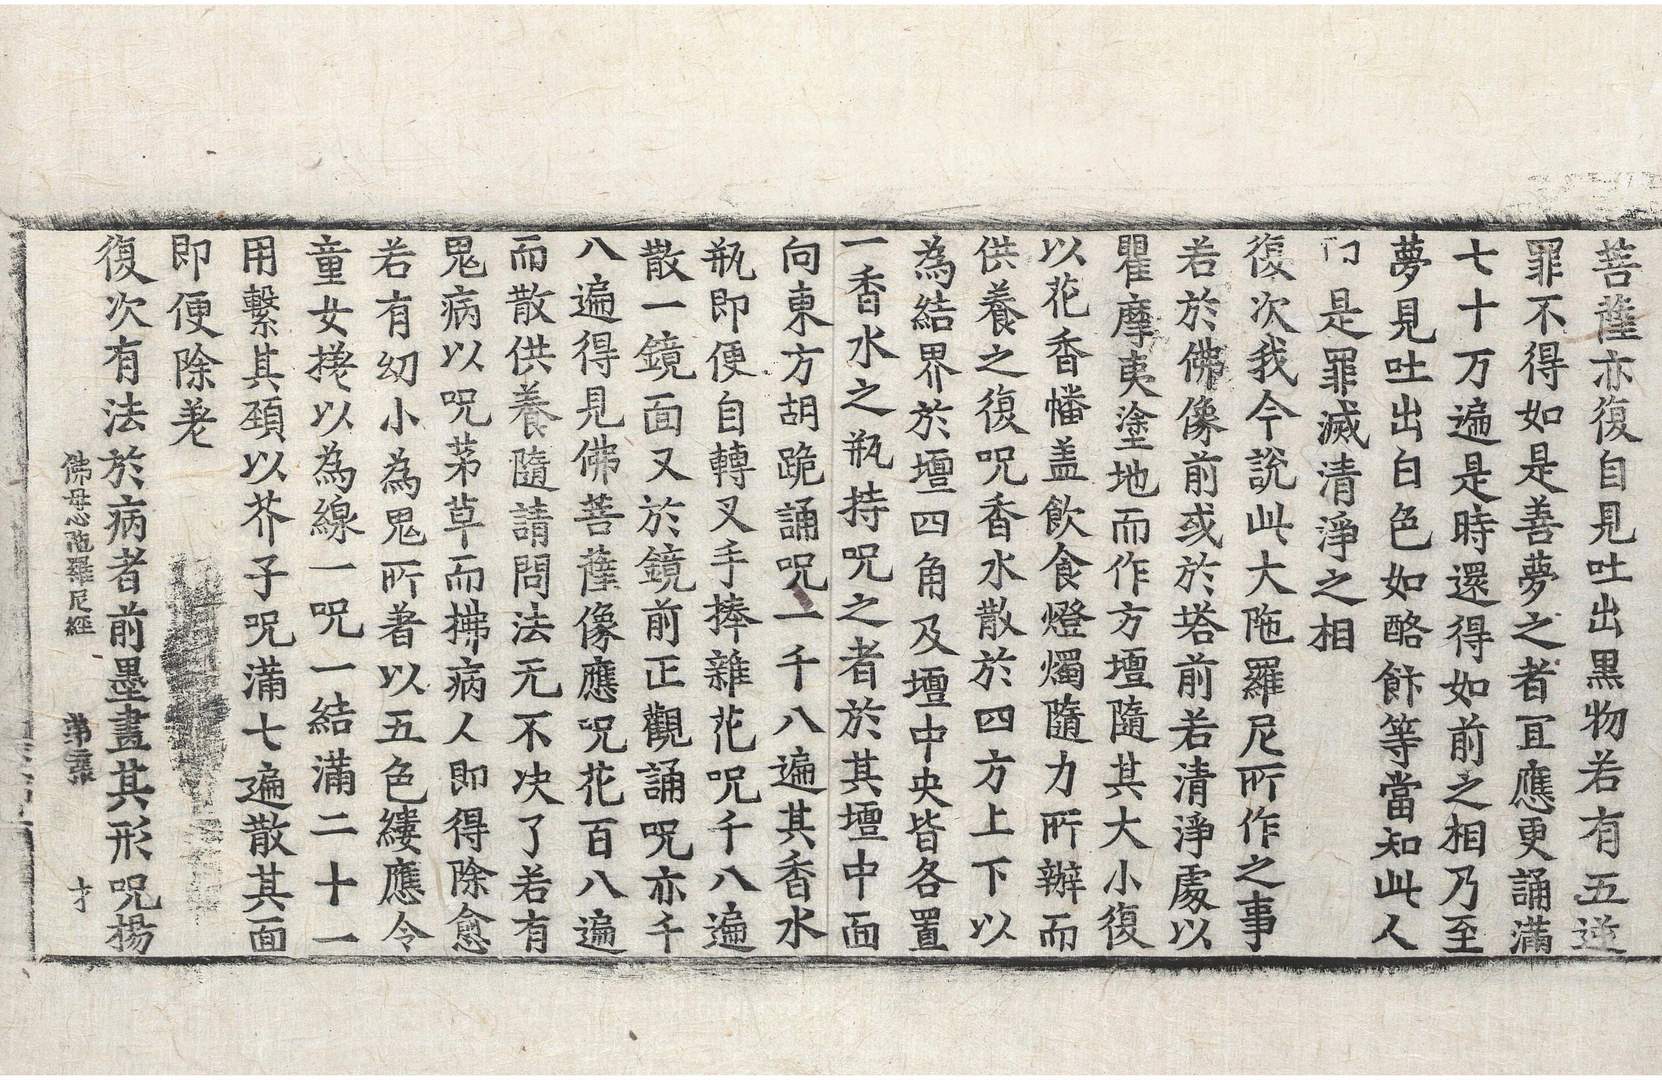 菩薩亦復自見吐出黒物若有五逆
罪不得如是善夢之者冝應更誦滿
七十万遍是時還得如前之相乃至
夢見吐出白色如酪餅等當知此人
是罪滅清淨之相
復次我今說此大陁羅尼所作之事
若於佛像前或於塔前若清淨處以
瞿摩夷塗地而作方壇隨其大小復
以花香幡盖飲食燈燭隨力所辦而
供養之復呪香水散於四方上下以
為結界於壇四角及壇中央皆各置
一香水之瓶持呪之者於其壇中面
向東方胡跪誦呪一千八遍其香水
瓶即便自轉叉手捧雜花呪千八遍
散一鏡面又於鏡前正觀誦呪亦千
八遍得見佛菩薩像應呪花百八遍
而散供養隨請問法无不決了若有
鬼病以呪茅草而拂病人即得除愈
若有幼小為鬼所著以五色縷應令
童女搓以為線一呪一結滿二十一
用繫其頚以芥子呪滿七遍散其面
即便除差
復次有法於病者前墨畫其形呪楊
佛母心陁羅尼經 第三張 才